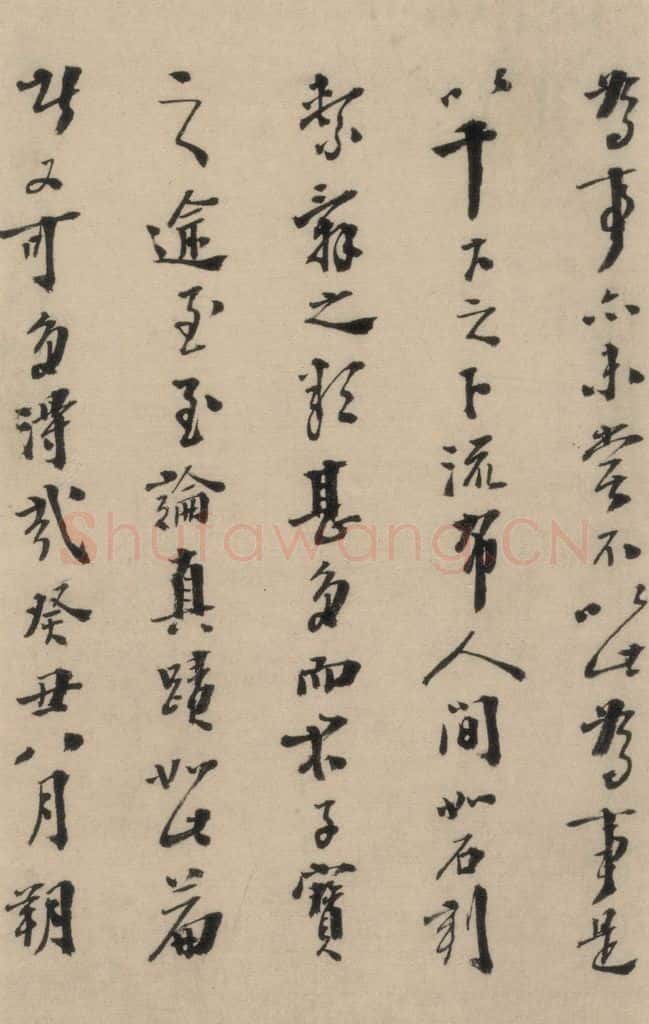 為事亦未嘗不以此為事是
以千古之下流布人間如石刻
繫辭之類甚多而求子寶
之途至至論真蹟如此篇
者又可多得哉癸丑八月朔
Shufawang.CN